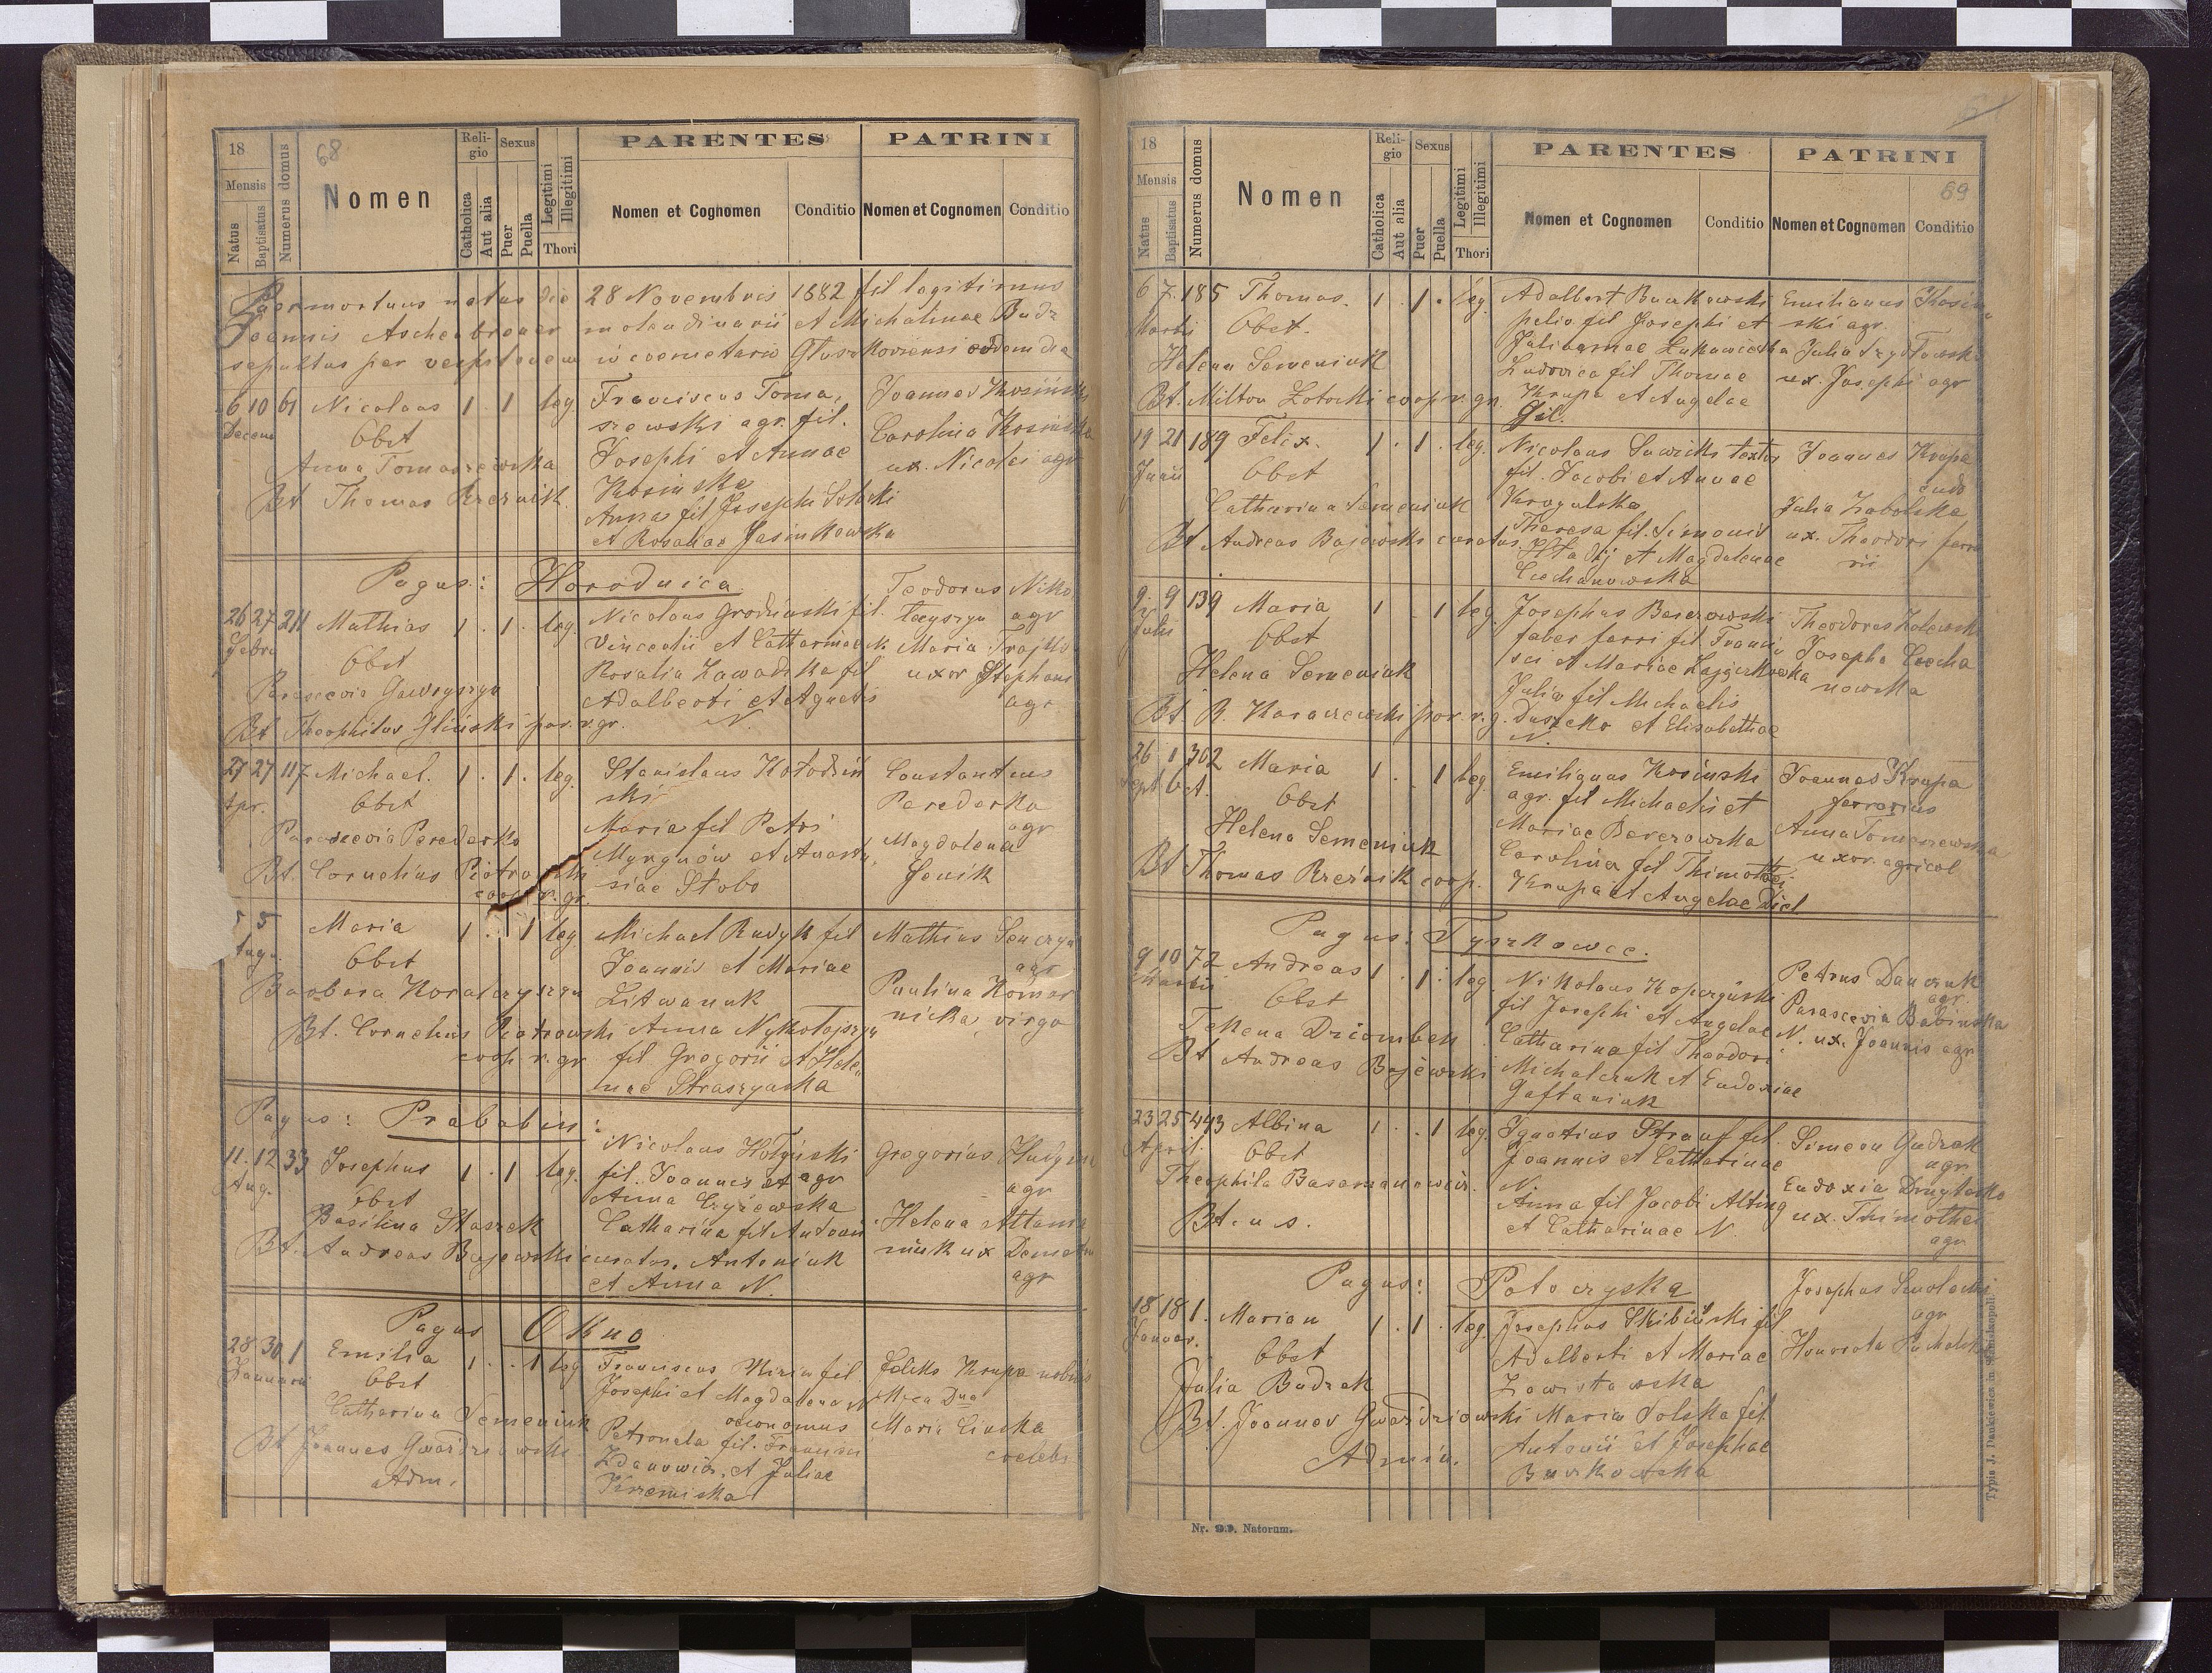 18
Mensis
Natus
Baptisatus
Numerus domus
68
Nomen
Religio
Catholica
Aut alia
Sexus
Puer
Puella
Legitimi
Illegitimi
Thori
PARENTES
Nomen et Cognomen
Conditio
PATRINI
Nomen et Cognomen
Conditio
natus die 28 Novembris 1882 fil legitimus
Joannis Aschenbrener molendinarii et Michalinae Budz
sepultus per in coemeterio eodem die
6 10 61 Nicolaus 1 . 1 leg
Decem
Obst
Anna Tomaszewska
Bt Thomas Rzeźnik
Franciscus Toma
szewski agr. fil.
Josephi et Annae
Kosinska
Anna fil Josephi
et Rosaliae Jasinkowska
Joannes Kosiński
Carolina Kosinska
ux. Nicolai agr
Pagus: Horodnica
26 27 211 Mathias 1 . 1 . leg.
Febru
Obst
Parascevia Gawryszyn
Bt Theophilus Gliński par. r. gr.
Nicolaus Grodzinski fil.
Vincentii et Catharinae N.
Rosalia Zawadzka fil
Adalberti et Agnetis
N.
Teodorus Niko
agr
Maria
uxor Stephani
agr
27 27 117 Michael. 1 . 1 . leg.
Apr.
Obst
Parascevia Perederko
Bt. Cornelius Piotrowski
coop. r. gr.
Stanislaus Kołodziń
ski
Maria fil Petri
et Anasta
siae Stobo
Constantinus
Perederko
agr
Magdalena
Jenik
5 5 Maria 1 . . 1 leg
Augu.
Obst
Barbara Koralczyszyn
Bt. Cornelius Piotrowski
coop. r. gr.
Michael Rudyk fil
Joannis et Mariae
Litwanuk
Anna Nykołajszyn
fil Gregorii et Hele
nae Straszyńska
Mathias Senczyn
agr
Paulina Komar
nicka virgo
Pagus: Probabin:
11. 12 33 Josephus 1 . 1 leg.
Aug.
Obst
Basilina Staszek
Bt. Andreas Bajewski curatus.
Nicolaus Hołyński
fil. Joannis et agr
Anna Czyżewska
Catharina fil Antonii
Antoniuk
et Anna N.
Gregorius
agr
Helena Attama
niuk ux
agr
Pagus Okno
28 30 1 Emilia 1 . . 1 leg
Januarii
Obst
Catharina Semeniuk
Bt Joannes Gwoździowski
Adm.
Franciscus fil
Josephi et Magdalena N
oeconomus
Petronela fil. Francisci
Zdanowicz. et Juliae
Krzemiska
Feliks Krupa nobilis
Maria
coelebs
18
Mensis
Natus
Baptisatus
Numerus domus
Nomen
Religio
Catholica
Aut alia
Sexus
Puer
Puella
Legitimi
Illegitimi
Thori
PARENTES
Nomen et Cognomen
Conditio
PATRINI
69
Nomen et Cognomen
Conditio
6 7 185 Thomas. 1 . 1 . leg
Martii
Obst.
Helena Semeniuk
Bt. Milton Zotocki coop r. gr.
Adalbert Burkowski
pelio fil Josephi et
Julianae Łukawiecka
Ludovica fil Thomae
Krupa et Angelae
Dil.
Emilianus Kosin
ski agr.
Julia Szydłowska
ux. Josephi agr
19 21 189 Felix. 1 . 1 . leg.
Junii
Obst
Catharina Semeniuk
Bt Andreas Bajowski curatus.
Nicolaus Sawicki textor
fil. Jacobi et Annae
Krogulska
Theresa fil. Simonis
et Magdalenae
Ciechanowska
Joannes Krupa
Julia Zabolska
ux. Theodori ferra
rii
9. 9 139 Maria 1 . . 1 leg.
Julii
Obst
Helena Semeniuk
Bt R. Karaczewski par. r. g.
Josephus Berezowski
faber ferri fil. Franci
sci et Mariae
Julia fil Michaelis
Duszeko et Elisabethae
N.
Theodorus
Josepha Ciecha
nowska
26 1 302 Maria 1 . . 1 leg.
Sept Oct.
Obst
Helena Semeniuk
Bt Thomas Rzeźnik coop.
Emilianus Kosinski
agr. fil Michaelis et
Mariae Berezowska
Carolina fil Thimothei
Krupa et Angelae Diel
Joannes Krupa
ferrarius
Anna Tomaszewska
uxor. agricol
Pagus: Tyszkowce.
9 10 72 Andreas 1 . 1 . leg
Martii
Obst
Tekena Dziomben
Bt Andreas Bajewski
Nikolaus Koperzyński
fil Josephi et Angelae N.
Catharina fil Theodori
Michalczuk et Eudoxiae
Gaftaniuk
Petrus Danczuk
agr.
Parascevia Babinska
ux. Joannis agr
23 25 443 Albina 1 . . 1 leg.
April.
Obst
Theophila Basamanowicz.
Bt. u s.
Ignatius Strauf fil.
Joannis et Catharinae
N.
Anna fil Jacobi Alting
et Catharinae N.
Simeon Gudzak
agr
Eudoxia
ux. Thimothei
agr
Pagus: Potoczyska
18 18 1. Marian 1 . 1 . leg.
Januar.
Obst
Julia Budzak
Bt. Joannes Gwoździowski
Admin.
Josephus Skibiński fil
Adalberti et Mariae
Zawistawska
Maria Solska fil
Antonii et Josephae
Burkowska
Josephus
agr
Honorata
Nr. 99. Natorum.
Typis J. Dankiewicz in Stanislaopoli.